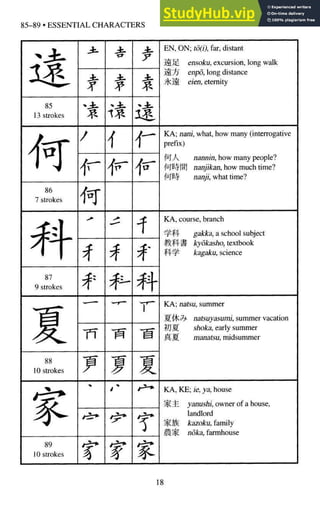 StudyHub.vip
Experienced writers
Delivery on time
Plagiarism free
85–89 • ESSENTIAL CHARACTERS
遠
85
13 strokes
EN, ON; tō(i), far, distant
遠足 ensoku, excursion, long walk
遠方 enpō, long distance
永遠 eien, eternity
何
86
7 strokes
KA; nani, what, how many (interrogative
prefix)
何人 nannin, how many people?
何時間 nanjikan, how much time?
何時 nanji, what time?
科
87
9 strokes
KA, course, branch
学科 gakka, a school subject
教科書 kyōkasho, textbook
科学 kagaku, science
夏
88
10 strokes
KA; natsu, summer
夏休み natsuyasumi, summer vacation
初夏 shoka, early summer
真夏 manatsu, midsummer
家
89
10 strokes
KA, KE; ie, ya, house
家主 yanushi, owner of a house,
landlord
家族 kazoku, family
農家 nōka, farmhouse
18